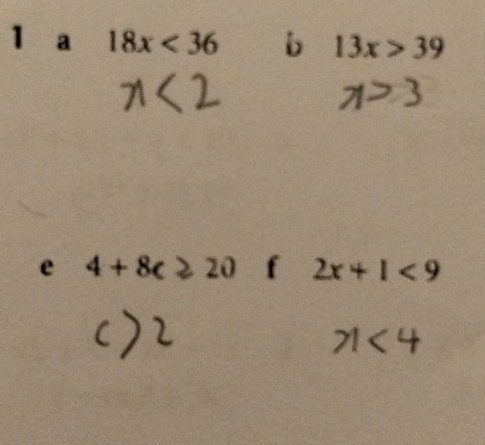 1 a 18x < 36 b 13x > 39
x < 2 x > 3
e 4 + 8c ⩾ 20 f 2x + 1 < 9
c > 2 x < 4